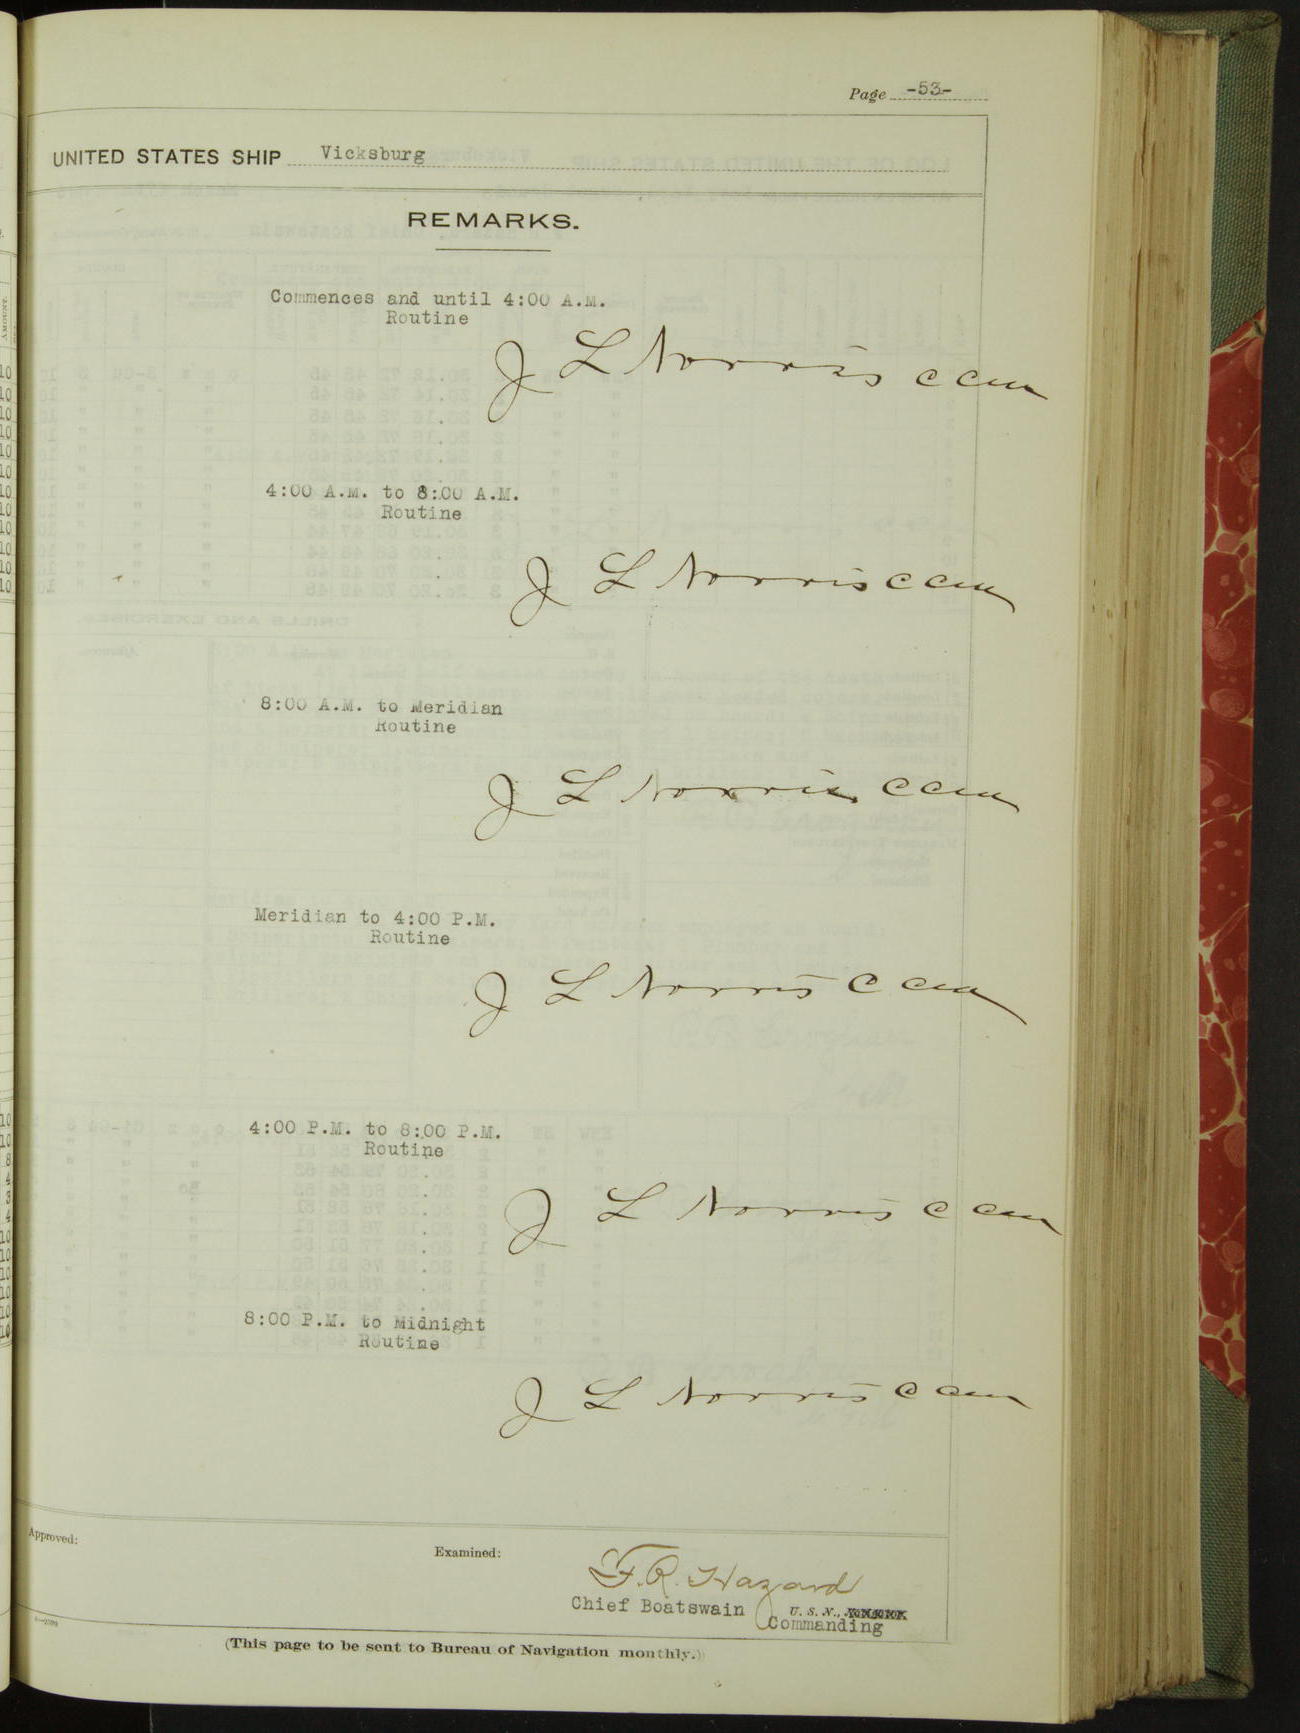 Page -53-
UNITED STATES SHIP Vicksburg
REMARKS.
Commences and until 4:00 A.M.
Routine
J L Norris CCM
4:00 A.M. to 8:00 A.M.
Routine
J L Norris CCM
8:00 A.M. to Meridian
Routine
J L Norris CCM
Meridian to 4:00 P.M.
Routine
J L Norris CCM
4:00 P.M. to 8:00 P.M.
Routine
J L Norris CCM
8:00 P.M. to Midnight
Routine
J L Norris CCM
Approved:
Examined:
F. R. Hazard
Chief Boatswain U. S. N.,
Commanding
(This page to be sent to Bureau of Navigation monthly.)